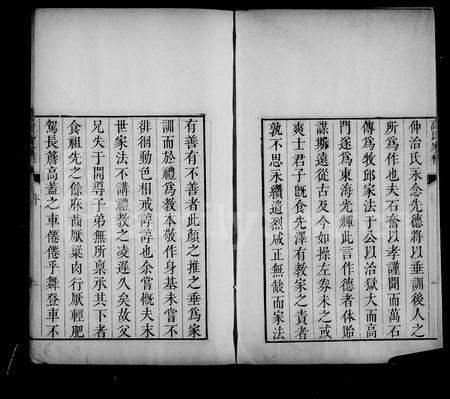 仲治氏永念先德將以垂訓後人之
所爲作也夫石奮以孝謹聞而萬石
傳爲牧邱家法于公以治獄大而高
門遂爲東海光輝此言作德者体貽
謀㢤遠從古及今如操左券未之或
爽士君子旣食先澤有教家之責者
孰不思永纘遺烈咸正無缺而家法
有善有不善者此顏之推之垂爲家
訓而於禮爲教本敬作身基未嘗不
徘徊動色相戒諄諄也余嘗慨夫末
世家法不講禮教之凌遲久矣故父
兄失于閒尊子弟無所稟承其下者
食祖先之餘庥齒厭粱肉行厭輕肥
駕長簷高蓋之車倦倦乎舞登車不